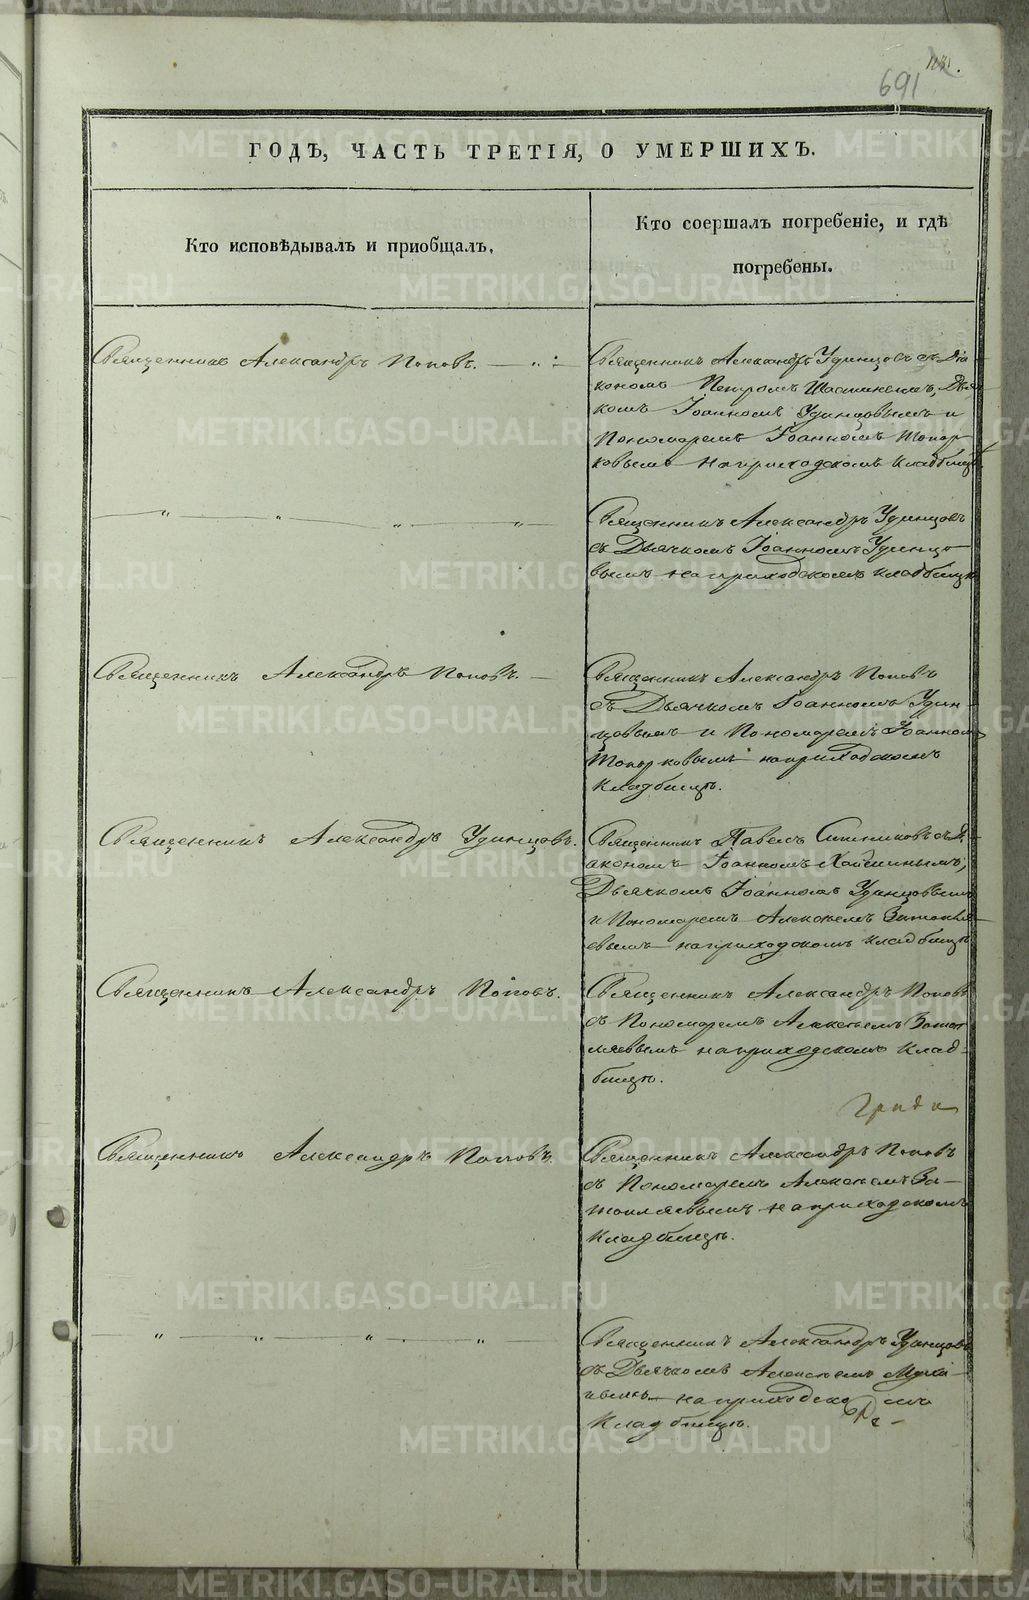 691
ГОДЪ, ЧАСТЬ ТРЕТІЯ, О УМЕРШИХЪ.
Кто исповѣдывалъ и приобщалъ.
Кто соершалъ погребеніе, и гдѣ
погребены.
Священникъ Александръ Поповъ.
Священникъ Александръ Удинцовъ съ Діа-
кономъ Петромъ Дья-
комъ Іоанномъ Удинцовымъ и
Пономаремъ Іоанномъ Топор-
ковымъ на приходскомъ кладбищѣ
Священникъ Александръ Удинцовъ
съ Дьячкомъ Іоанномъ Удинцо-
вымъ на приходскомъ кладбищѣ
Священникъ Александръ Поповъ.
Священникъ Александръ Поповъ
съ Дьячкомъ Іоанномъ Удин-
цовымъ и Пономаремъ Іоанномъ
Топорковымъ на приходскомъ
кладбищѣ.
Священникъ Александръ Удинцовъ.
Священникъ Павелъ съ Ді-
акономъ Іоанномъ
Дьячкомъ Іоанномъ Удинцовымъ
и Пономаремъ Алексѣемъ Затопля-
евымъ на приходскомъ кладбищѣ
Священникъ Александръ Поповъ.
Священникъ Александръ Поповъ
съ Пономаремъ Алексѣемъ Затоп-
ляевымъ на приходскомъ клад-
бищѣ.
Священникъ Александръ Поповъ.
Священникъ Александръ Поповъ
съ Пономаремъ Алексѣемъ За-
топляевымъ на приходскомъ
кладбищѣ.
Священникъ Александръ Удинцовъ
съ Дьячкомъ Алексѣемъ
на приходскомъ
кладбищѣ.
METRIKI.GASO-URAL.RU